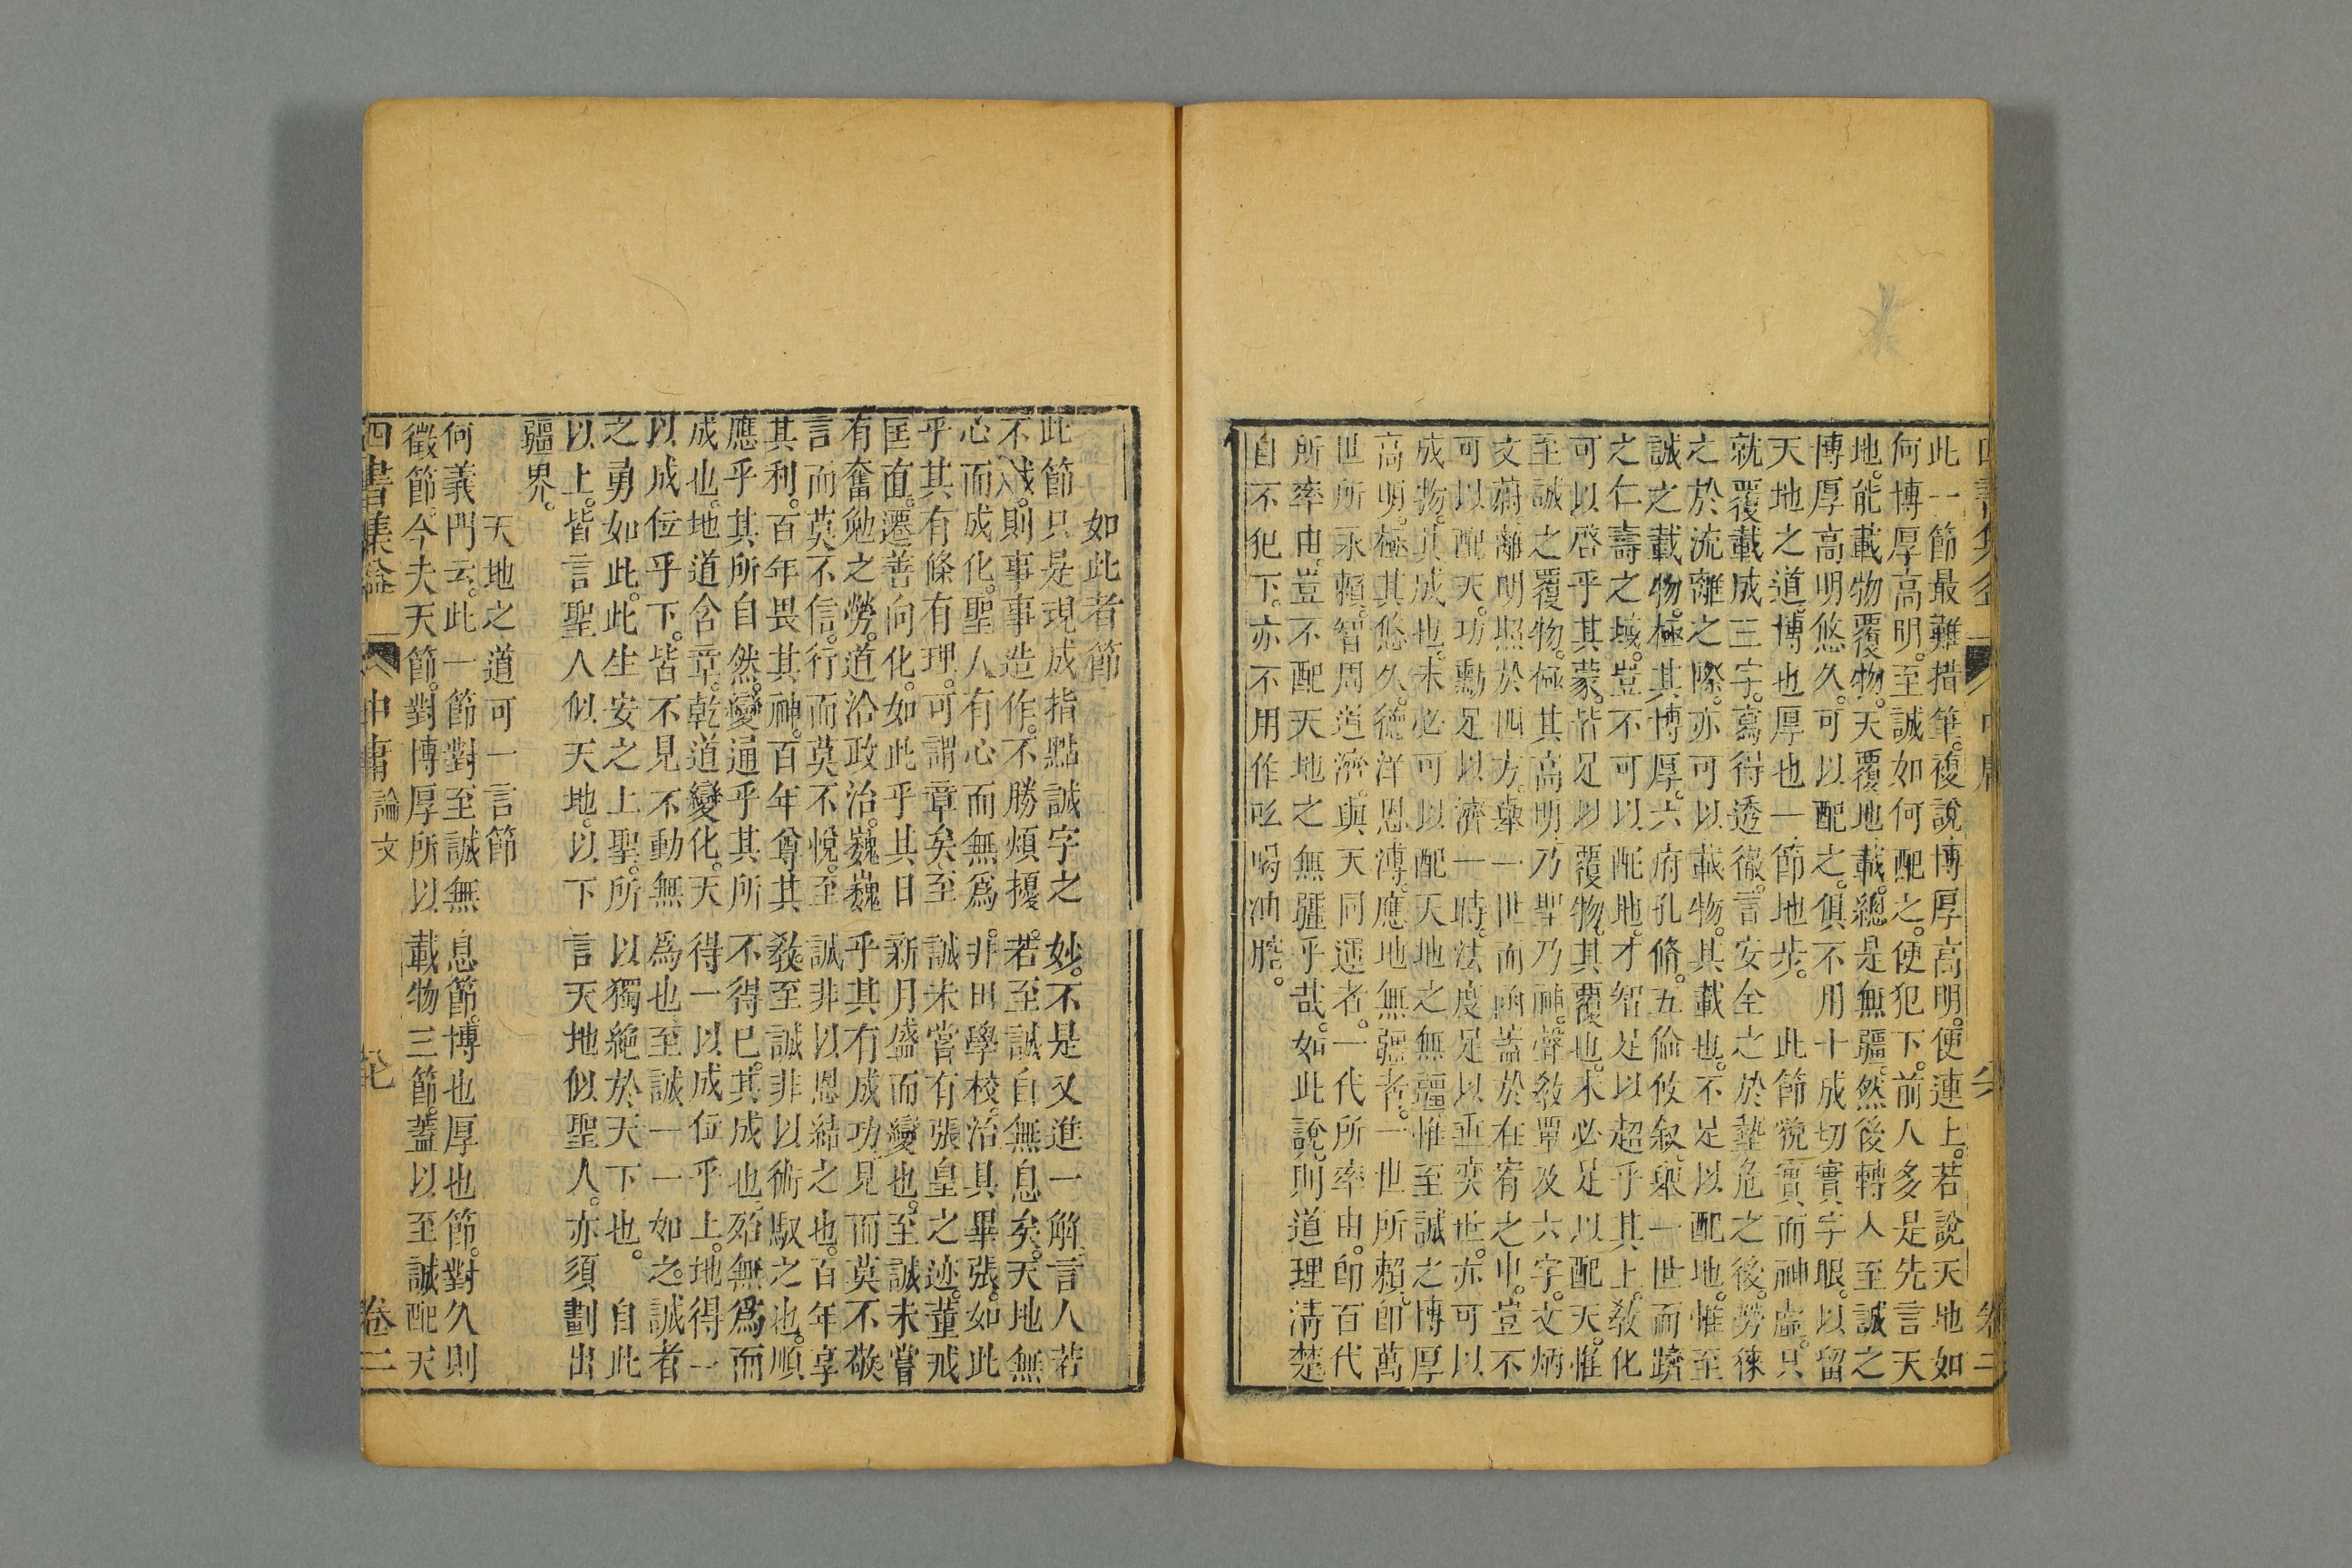 此一節最難措筆複說博厚高明便連上若說天地如
何博厚高明至誠如何配之便犯下前人多是先言天
地能載物覆物天覆地載總是無疆然後轉人至誠之
博厚高明悠久可以配之俱不用十成切實字眼以留
天地之道博也厚也一節地步 此節貌實而神虛只
就覆載成三字寫得透徹言安全之於墊危之後勞徠
之於流離之際亦可以載物其載也不足以配地惟至
誠之載物極其博厚六府孔脩五倫攸叙舉一世而躋
之仁壽之域豈不可以配地才智足以超乎其上敎化
可以啓乎其蒙皆足以覆物其覆也未必足以配天惟
至誠之覆物極其高明乃聖乃神聲敎覃及六字文炳
文蔚離明照於四方舉一世而函蓋於在宥之中豈不
可以配天功勳足以濟一時法度足以垂奕世亦可以
成物其成也未必可以配天地之無疆惟至誠之博厚
高明極其悠久德洋恩溥應地無疆者一世所賴卽萬
世所永賴智周道濟與天同運者一代所率由卽百代
所率由豈不配天地之無疆乎哉如此說則道理淸楚
自不犯下亦不用作吆喝油腔
如此者節
此節只是現成指點誠字之妙不是又進一解言人若
不誠則事事造作不勝煩擾若至誠自無息矣天地無
心而成化聖人有心而無爲非田學校治具畢張如此
乎其有條有理可謂章矣至誠未嘗有張皇之迹董戒
匡直遷善向化如此乎其日新月盛而變也至誠未嘗
有奮勉之勞道洽政治巍巍乎其有成功見而莫不敬
言而莫不信行而莫不悅至誠非以恩結之也百年享
其利百年畏其神百年尊其敎至誠非以術馭之也順
應乎其所自然變通乎其所不得已其成也殆無爲而
成也地道含章乾道變化天得一以成位乎上地得一
以成位乎下皆不見不動無爲也至誠一一如之誠者
之勇如此此生安之上聖所以獨絶於天下也 自此
以上皆言聖人似天地以下言天地似聖人亦須劃出
疆界
天地之道可一言節
何義門云此一節對至誠無息節博也厚也節對久則
徵節今夫天節對博厚所以載物三節蓋以至誠配天
四書集益 中庸 論文 卷二